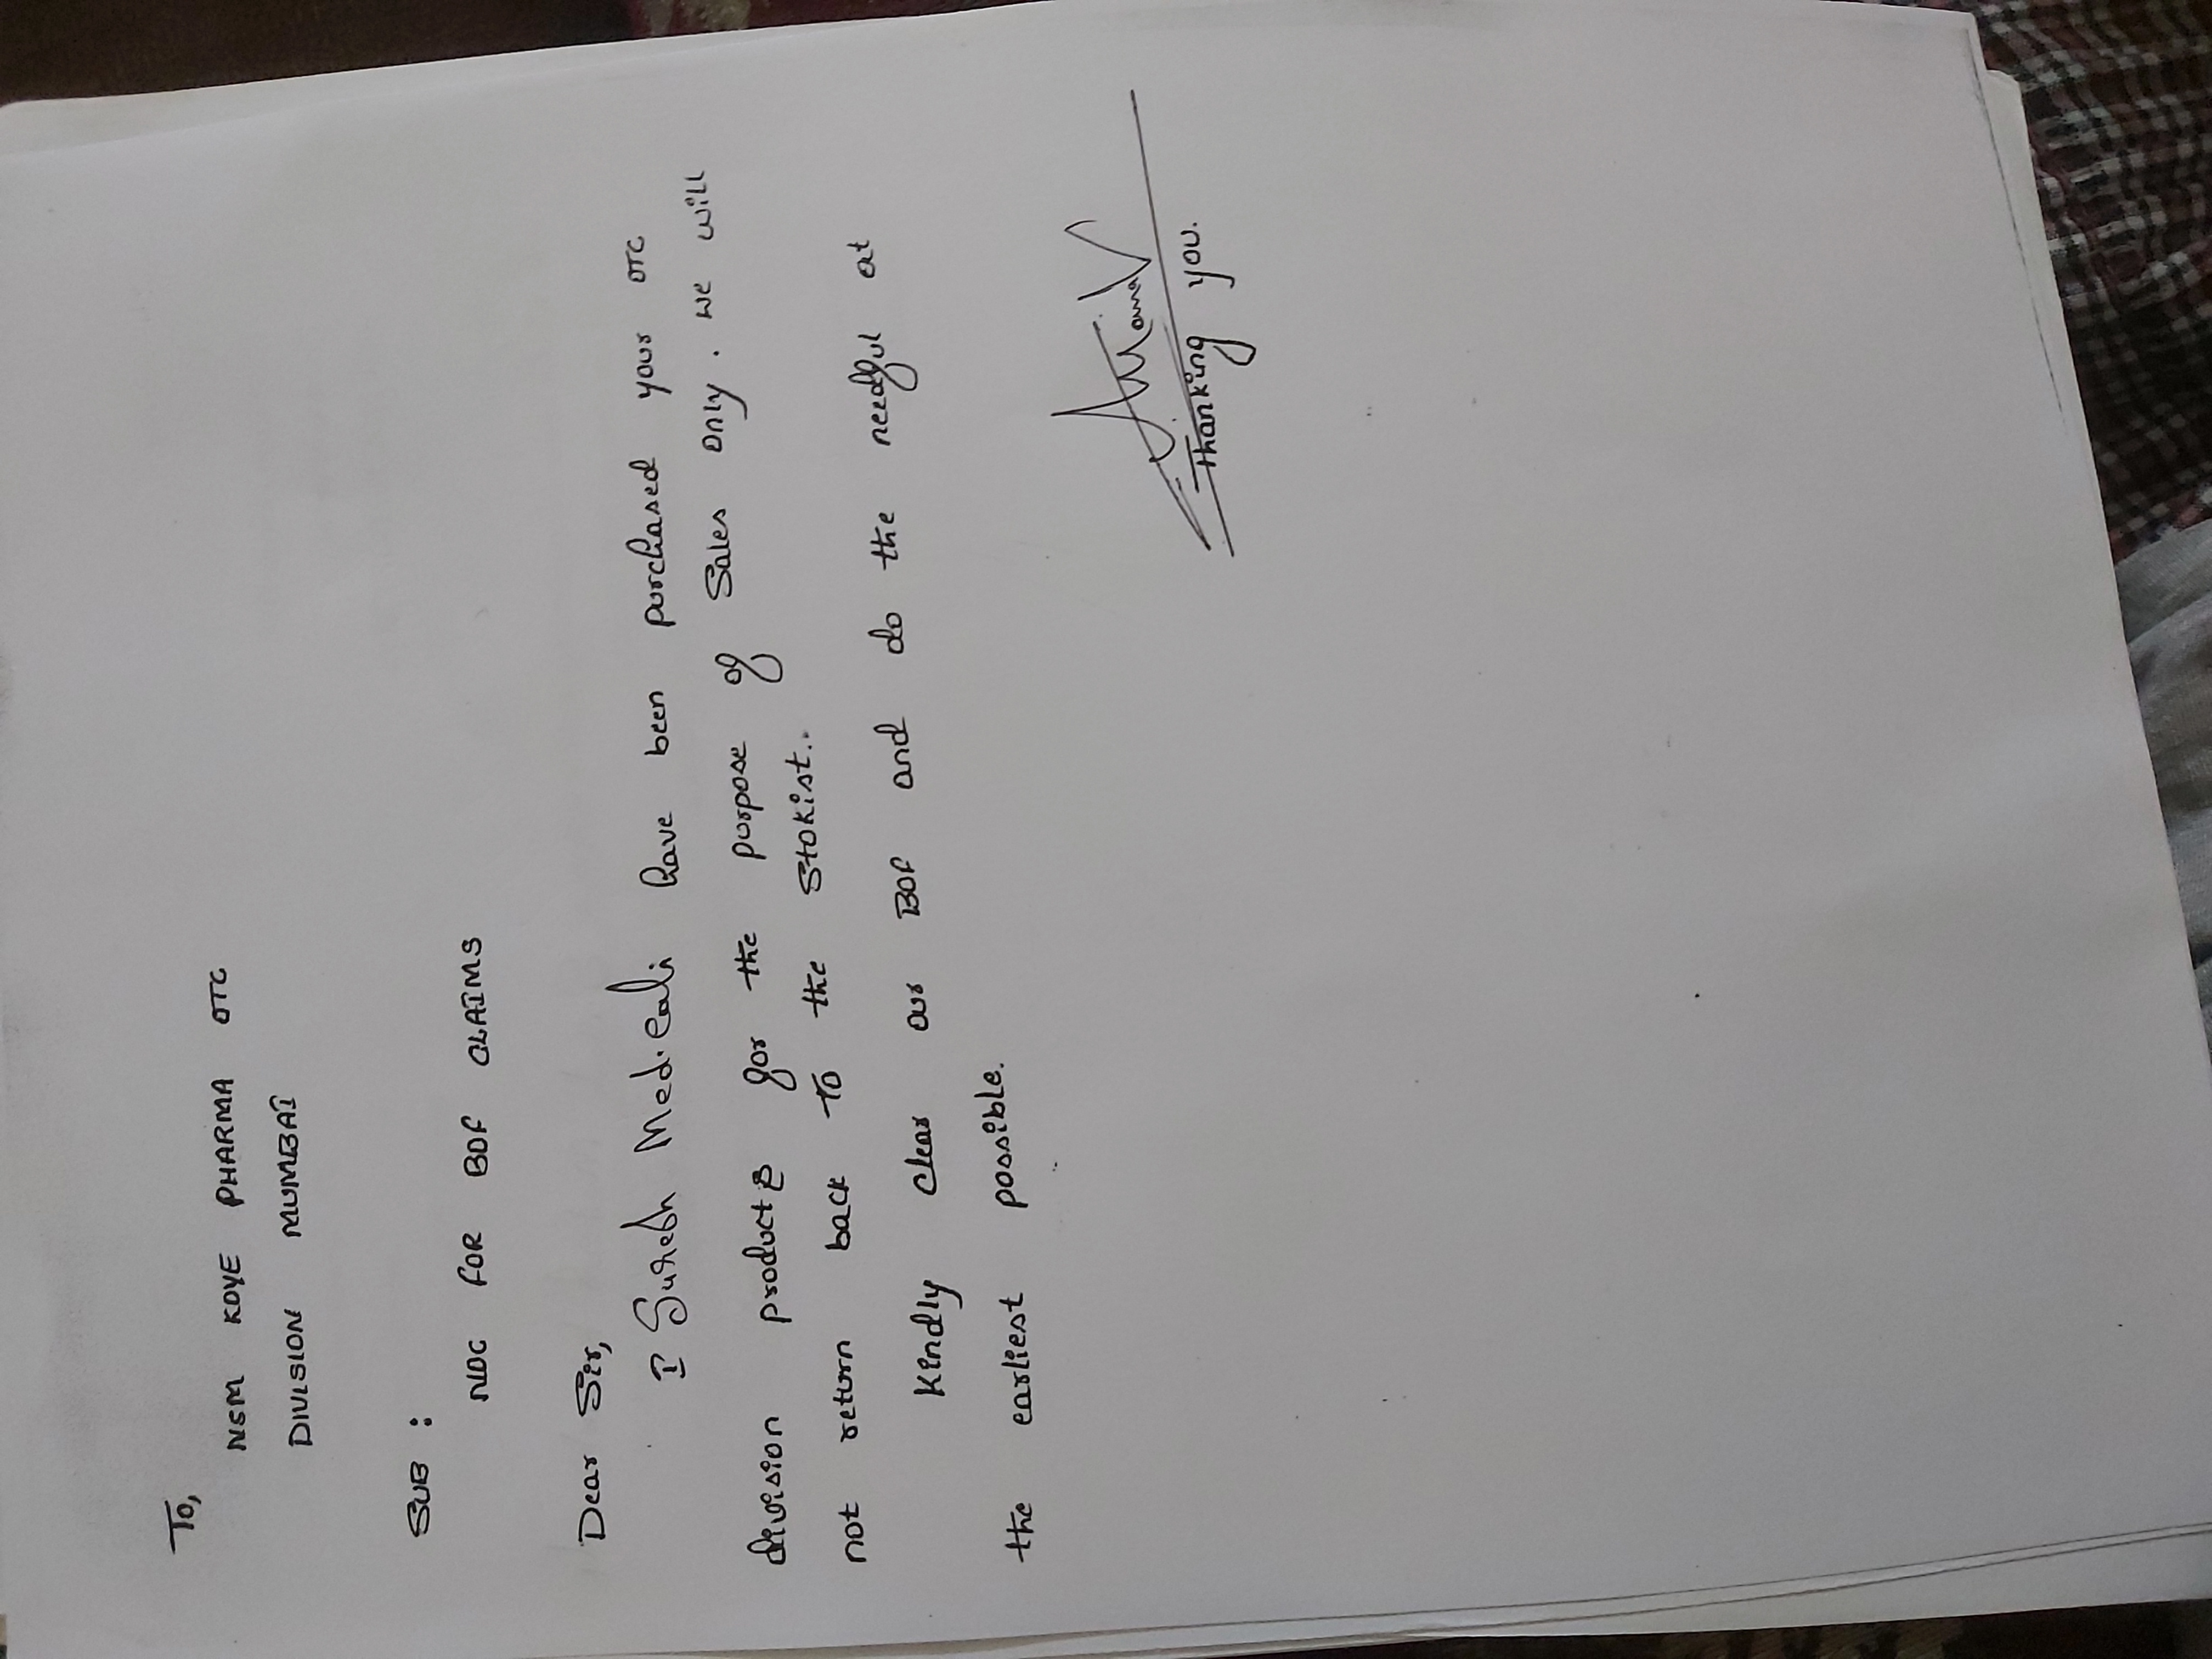 To,
NSM KOYE PHARMA OTC
DIVISION MUMBAI
SUB :
NOC FOR BDF CLAIMS
Dear Sir,
I Suresh Medicals have been purchased your OTC
division products for the purpose of Sales only. we will
not return back to the Stokist..
Kindly clear our BDF and do the needful at
the earliest possible.
Thanking you.